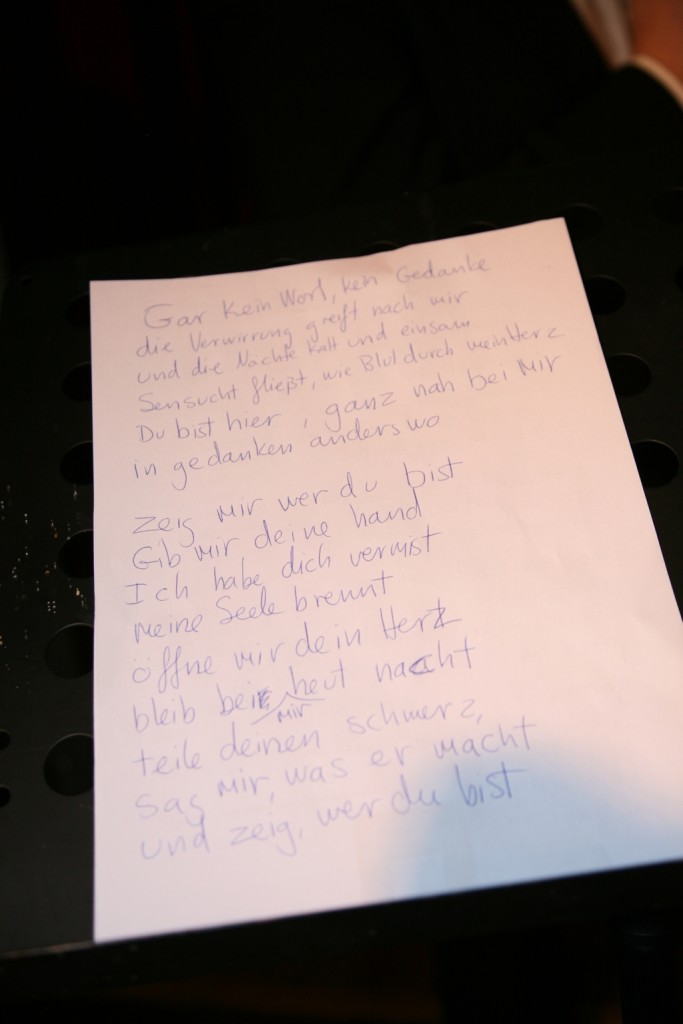 Gar kein Wort, kein Gedanke
die Verwirrung greift nach mir
und die Nächte kalt und einsam
Sensucht fließt, wie Blut durch mein Herz
Du bist hier, ganz nah bei mir
in gedanken anderswo
Zeig mir wer du bist
Gib mir deine hand
Ich habe dich vermist
meine Seele brennt
öffne mir dein Herz
bleib bei mir heut nacht
teile deinen schmerz,
sag mir, was er macht
und zeig, wer du bist